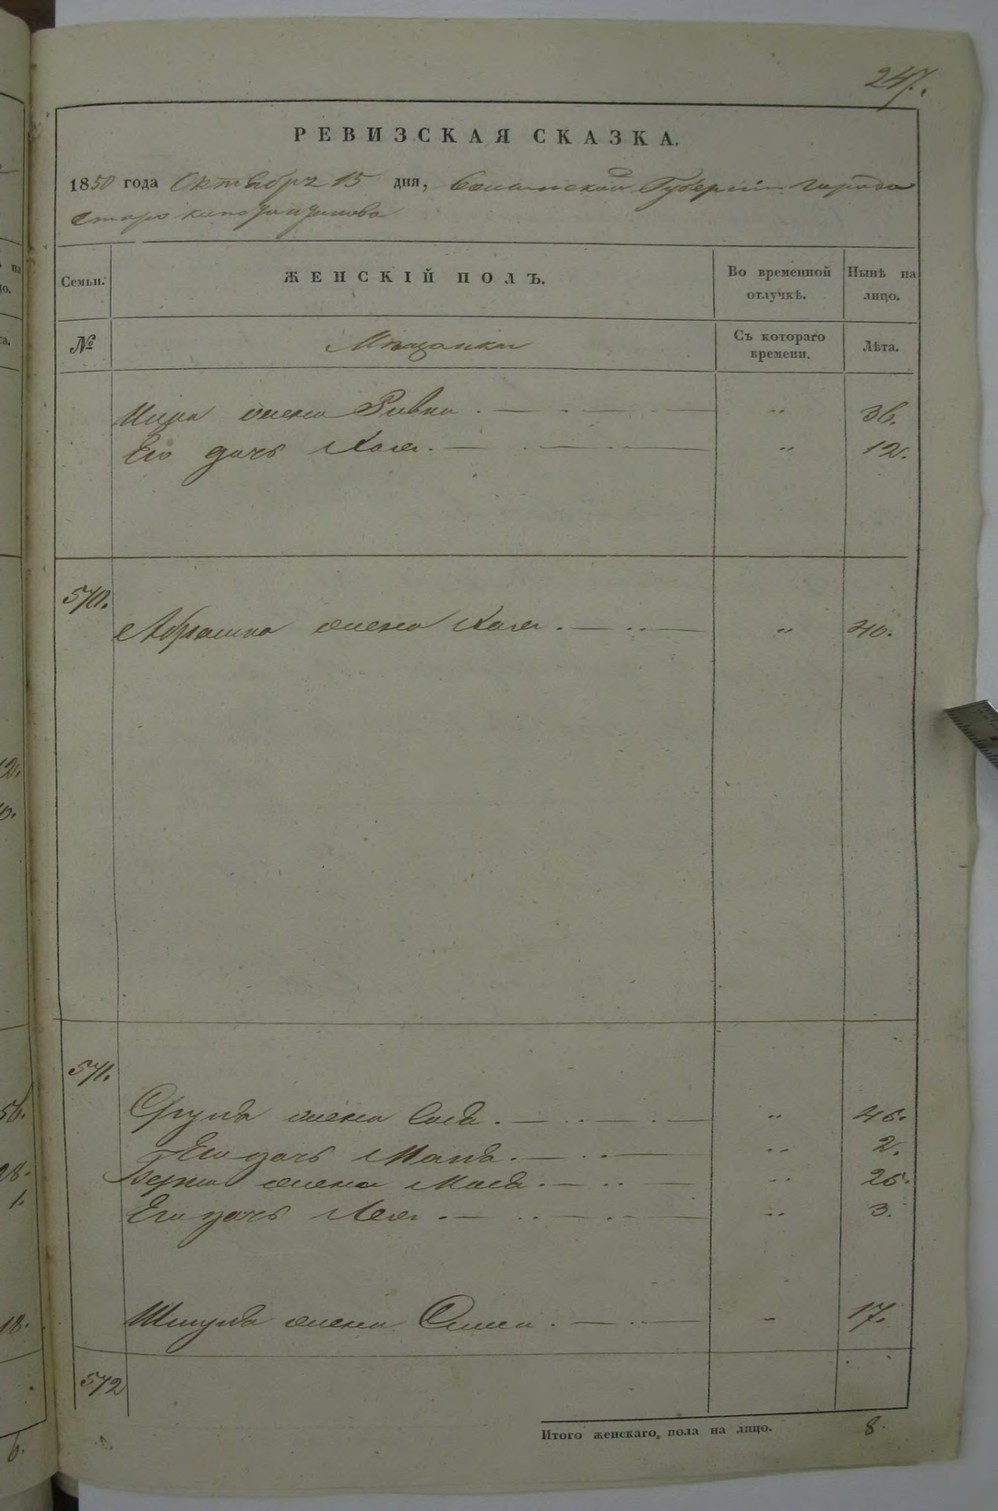 247.
РЕВИЗСКАЯ СКАЗКА.
1850 года Октября 15 дня, Волынской Губернии города
Старо константинова
Семьи.
ЖЕНСКІЙ ПОЛЪ.
Во временной отлучкѣ.
Нынѣ на лицо.
№
Мѣщанки
Съ котораго времени.
Лѣта.
жена Ривка . — . — " 36.
Его дочь Хая . — . — " 12.
570.
Абрамка жена Хая . — .. — " 40.
571.
жена . — .. — . — " 45.
Его дочь . — .. — " 2.
Берка жена . — .. — " 25.
Его дочь Лея . — .. — . — " 3.
Шмуля жена . — .. — " 17.
572
Итого женскаго пола на лицо. 8.
12.
28.
1.
18.
6.